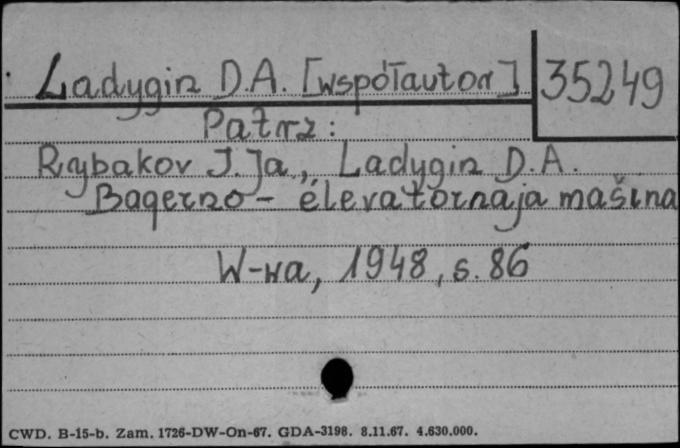 Ladygin D.A. [współautor] 35249
Patrz:
Rybakov I. Ja., Ladygin D.A.
Bagerno - élevatornaja mašina
W-wa, 1948, s. 86
CWD. B-15-b. Zam. 1726-DW-On-67. GDA-3198. 8.11.67. 4.630.000.